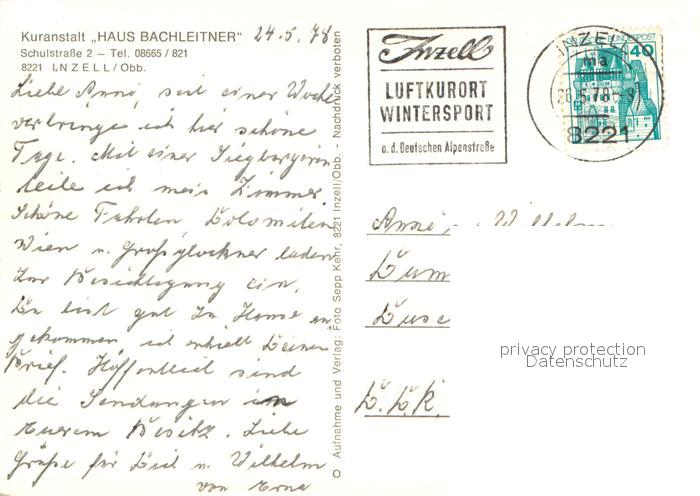 Kuranstalt „HAUS BACHLEITNER" 24.5.78
Schulstraße 2 – Tel. 08665 / 821
8221 INZELL / Obb.
Liebe Anne, seit einer Woche
verbringe ich hier schöne
Tage. Mit einer Siegburgerin
teile ich mein Zimmer.
Schöne Fahrten Dolomiten
Wien u. Großglockner laden
zur Besichtigung ein.
Du bist gut zu Hause an
gekommen, ich erhielt Deinen
Brief. Hoffentlich sind
die Sendungen in
Eurem Besitz. Liebe
Grüße für Dich u. Wilhelm
von Erna
O Aufnahme und Verlag: Foto Sepp Kehr, 8221 Inzell/Obb. - Nachdruck verboten
Inzell
LUFTKURORT
WINTERSPORT
a.d. Deutschen Alpenstraße
DEUTSCHE BUNDESPOST
40
INZELL
ma
26.5.78
8221
Anne Wilhelm
Dum
Duse
D.D.R.
privacy protection
Datenschutz